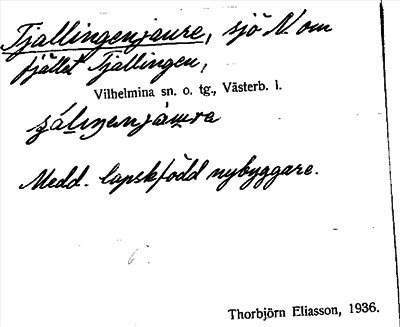 Tjallingenjaure, sjö N. om
fjället Tjallingen,
Vilhelmina sn. o. tg., Västerb. l.
Medd. lapskfödd nybyggare.
Thorbjörn Eliasson, 1936.